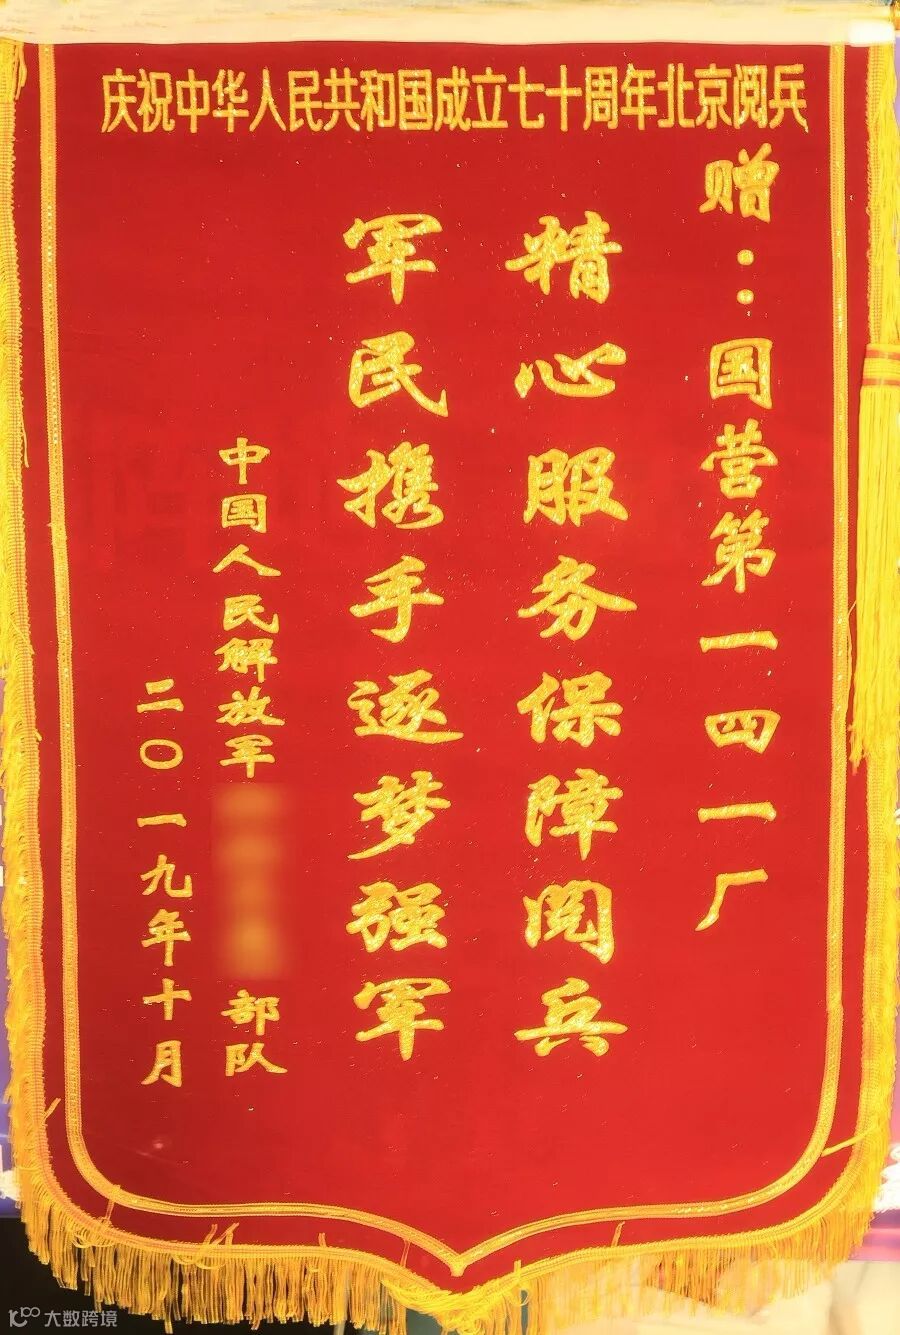 庆祝中华人民共和国成立七十周年北京阅兵
赠：国营第一四一厂
精心服务保障阅兵
军民携手逐梦强军
中国人民解放军
部队
二〇一九年十月
大数跨境